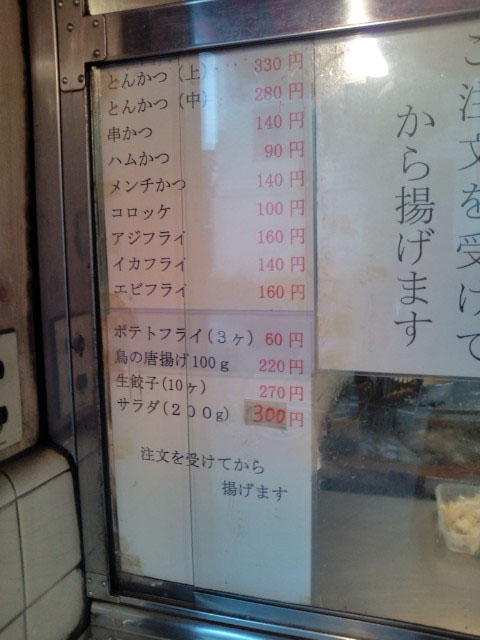 とんかつ（上）… 330円
とんかつ（中） 280円
串かつ 140円
ハムかつ 90円
メンチかつ 140円
コロッケ 100円
アジフライ 160円
イカフライ 140円
エビフライ 160円
ポテトフライ（3ヶ） 60円
鳥の唐揚げ100g 220円
生餃子(10ヶ) 270円
サラダ(200g) 300円
注文を受けてから
揚げます
ご注文を受けて
から揚げます